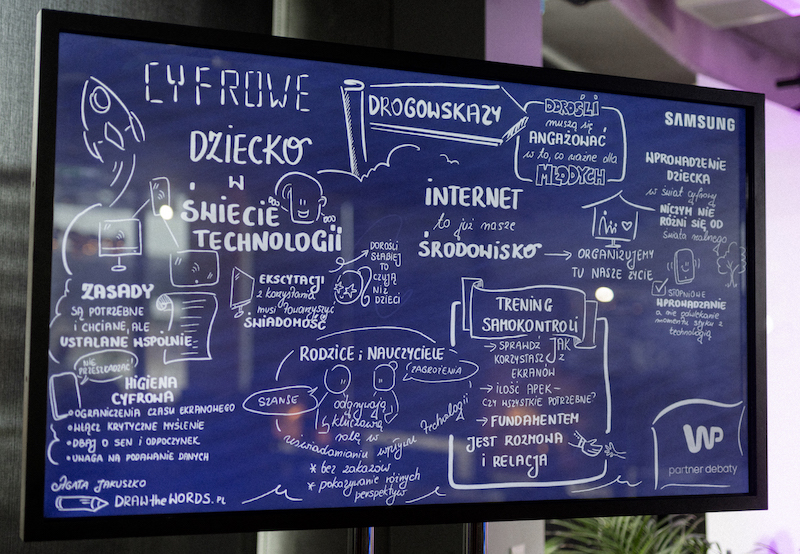 CYFROWE
DROGOWSKAZY
DOROŚLI
muszą się
ANGAŻOWAĆ
w to, co ważne dla
MŁODYCH
SAMSUNG
DZIECKO
W
ŚWIECIE
TECHNOLOGII
INTERNET
to już nasze
ŚRODOWISKO
ORGANIZUJEMY
TU NASZE ŻYCIE
WPROWADZENIE
DZIECKA
w świat cyfrowy
NICZYM NIE
RÓŻNI SIĘ OD
świata realnego
STOPNIOWE
WPROWADZANIE
a nie odwlekanie
momentu styku z
technologią
ZASADY
SĄ POTRZEBNE
I CHCIANE, ALE
USTALANE WSPÓLNIE
NIE
PRZESZKADZAĆ!
HIGIENA
CYFROWA
OGRANICZENIA CZASU EKRANOWEGO
WŁĄCZ KRYTYCZNE MYŚLENIE
DBAJ O SEN I ODPOCZYNEK
UWAGA NA PODAWANIE DANYCH
EKSCYTACJI
z korzystania
musi towarzyszyć
ŚWIADOMOŚĆ
DOROŚLI
SŁABIEJ
TO
CZUJĄ
NIŻ
DZIECI
RODZICE i NAUCZYCIELE
SZANSE
ZAGROŻENIA
odgrywają
kluczową
rolę w
uświadamianiu wpływu
technologii
* bez zakazów
* pokazywanie różnych
perspektyw
TRENING
SAMOKONTROLI
→ SPRAWDŹ JAK
KORZYSTASZ Z
EKRANÓW
→ ILOŚĆ APEK-
CZY WSZYSTKIE POTRZEBNE?
→ FUNDAMENTEM
JEST ROZMOWA
i RELACJA
WP
partner debaty
AGATA JAKUSZKO
DRAWtheWORDS.PL